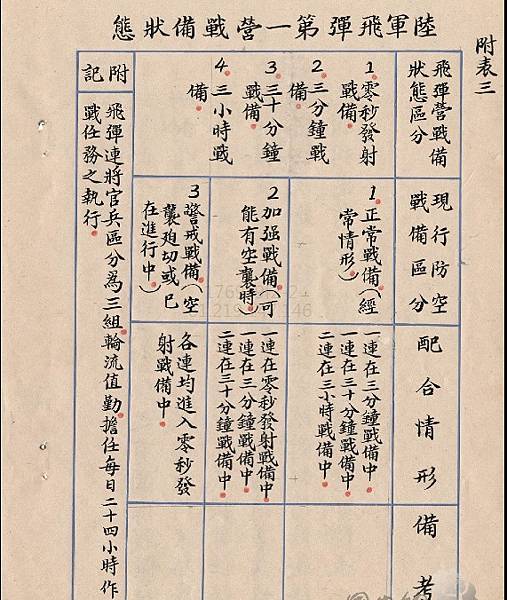 附表三
陸軍飛彈第一營戰備狀態
飛彈營戰備
狀態區分
1零秒發射
戰備
2三分鐘戰
備
3三十分鐘
戰備
4三小時戰
備
現行防空
戰備區分
1正常戰備(經
常情形)
2加强戰備(可
能有空襲時)
3警戒戰備(空
襲迫切或已
在進行中)
配合情形
一連在三分鐘戰備中
一連在三十分鐘戰備中
二連在三小時戰備中
一連在零秒發射戰備中
一連在三分鐘戰備中
二連在三十分鐘戰備中
各連均進入零秒發
射戰備中
備考
附記
飛彈連將官兵區分為三組輪流值勤擔任每日二十四小時作
戰任務之執行